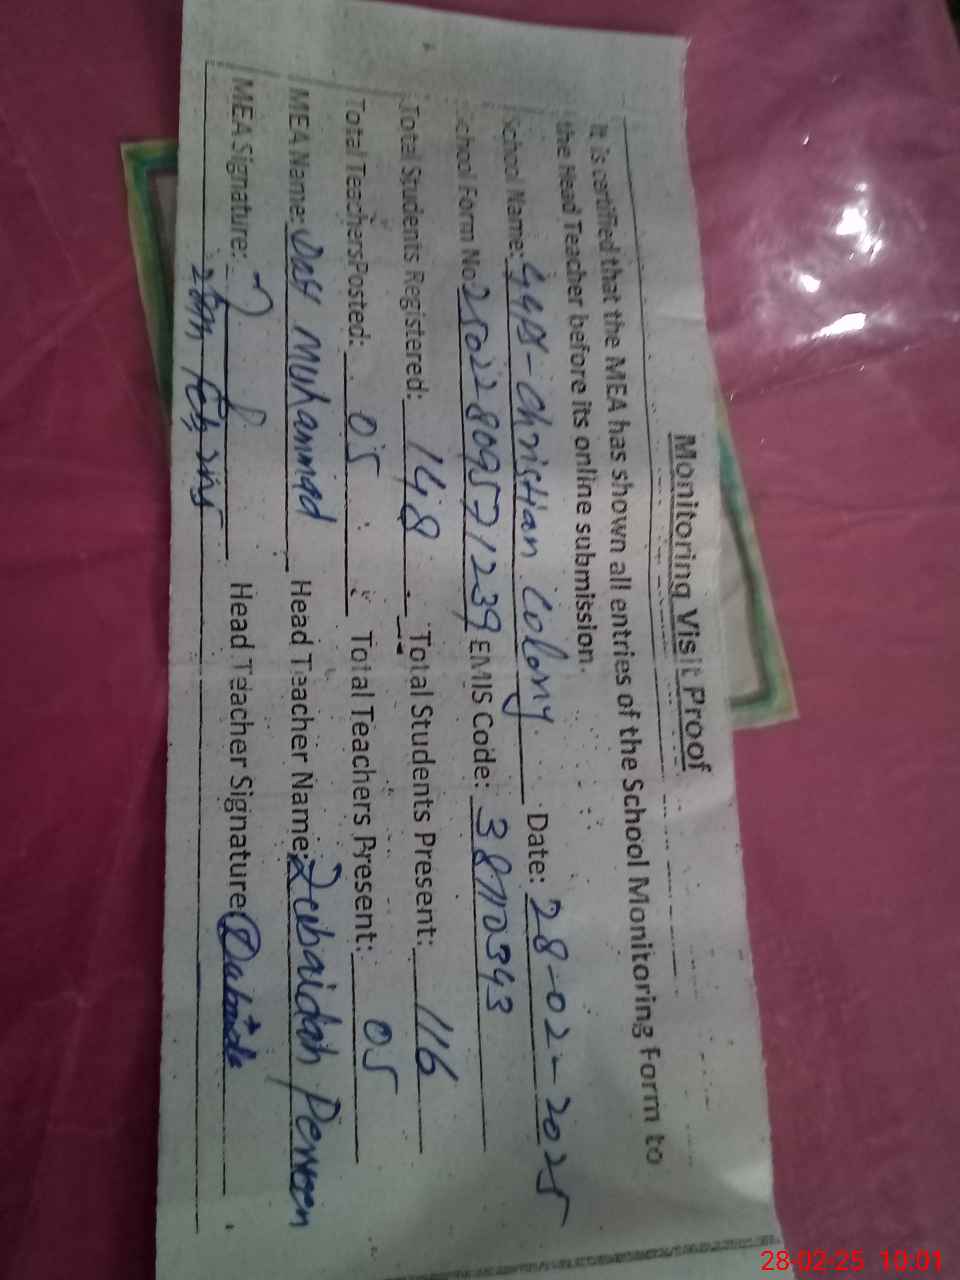 Monitoring Visit Proof
It is certified that the MEA has shown all entries of the School Monitoring Form to
the Head Teacher before its online submission.
School Name: Christian Colony Date: 28-02-2025
School Form No EMIS Code:
Total Students Registered: 148 Total Students Present: 116
Total TeachersPosted: 05 Total Teachers Present: 05
MEA Name: Muhammad Head Teacher Name: Zubaidah Perveen
MEA Signature: Head Teacher Signature
28-02-25 10:01